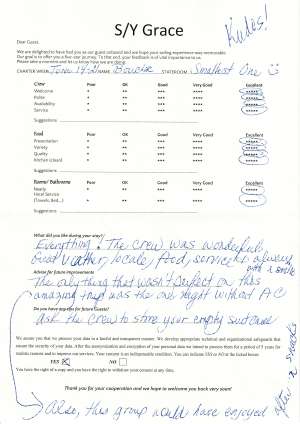 S/Y Grace
Kudos!
Dear Guest,
We are delighted to have had you as our guest onboard and we hope your sailing experience was memorable.
Our goal is to offer you a five-star journey. To that end, your feedback is of vital importance to us.
Please take a moment and let us know how we are doing.
CHARTER WEEK June 14-21 NAME STATEROOM Smallest One ☺
Crew Poor OK Good Very Good Excellent
Welcome * ** *** **** *****
Polite * ** *** **** *****
Availability * ** *** **** *****
Service * ** *** **** *****
Suggestions
Food Poor OK Good Very Good Excellent
Presentation * ** *** **** *****
Variety * ** *** **** *****
Quality * ** *** **** *****
Kitchen (clean) * ** *** **** *****
Suggestions
Rooms/ Bathrooms Poor OK Good Very Good Excellent
Neatly * ** *** **** *****
Hotel Service
(Towels, Bed...) * ** *** **** *****
Suggestions
What did you like during your stay?
Everything! The crew was wonderful,
Great weather, locale, food, service always
with a smile
Advise for future improvements
The only thing that wasn't perfect on this
amazing trip was the one night without AC
Do you have any tips for future Guests?
Ask the crew to store your empty suitcase
We assure you that we process your data in a lawful and transparent manner. We develop appropriate technical and organizational safeguards that
ensure the security of your data.
realistic reasons and to improve our services. Your consent is an indispensable condition. You can indicate YES or NO in the boxes below
YES X NO
You have the right of a copy and you have the right to withdraw your consent at any time.
Thank you for your cooperation and we hope to welcome you back very soon!
Also, this group would have enjoyed
after 4 snacks